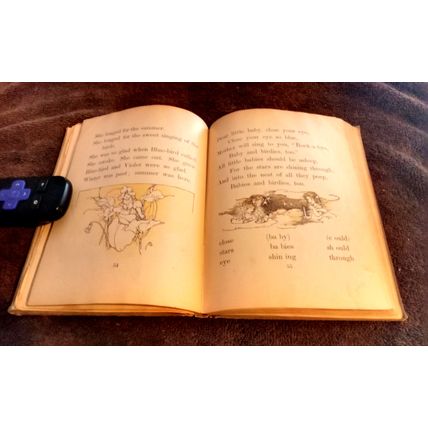 She longed for the summer.
She longed for the sweet singing of the
birds.
She was so glad when Blue-bird called.
She awoke. She came out. She grew.
Blue-bird and Violet were so glad.
Winter was past; summer was here.
54
Dear little baby, close your eyes,
Close your eyes so blue.
Mother will sing to you, "Rock-a-bye,
Baby and birdies, too."
All little babies should be asleep,
For the stars are shining through,
And into the nest of all they peep,
Babies and birdies, too.
close (ba by) (c ould)
stars ba bies sh ould
eye shin ing through
55